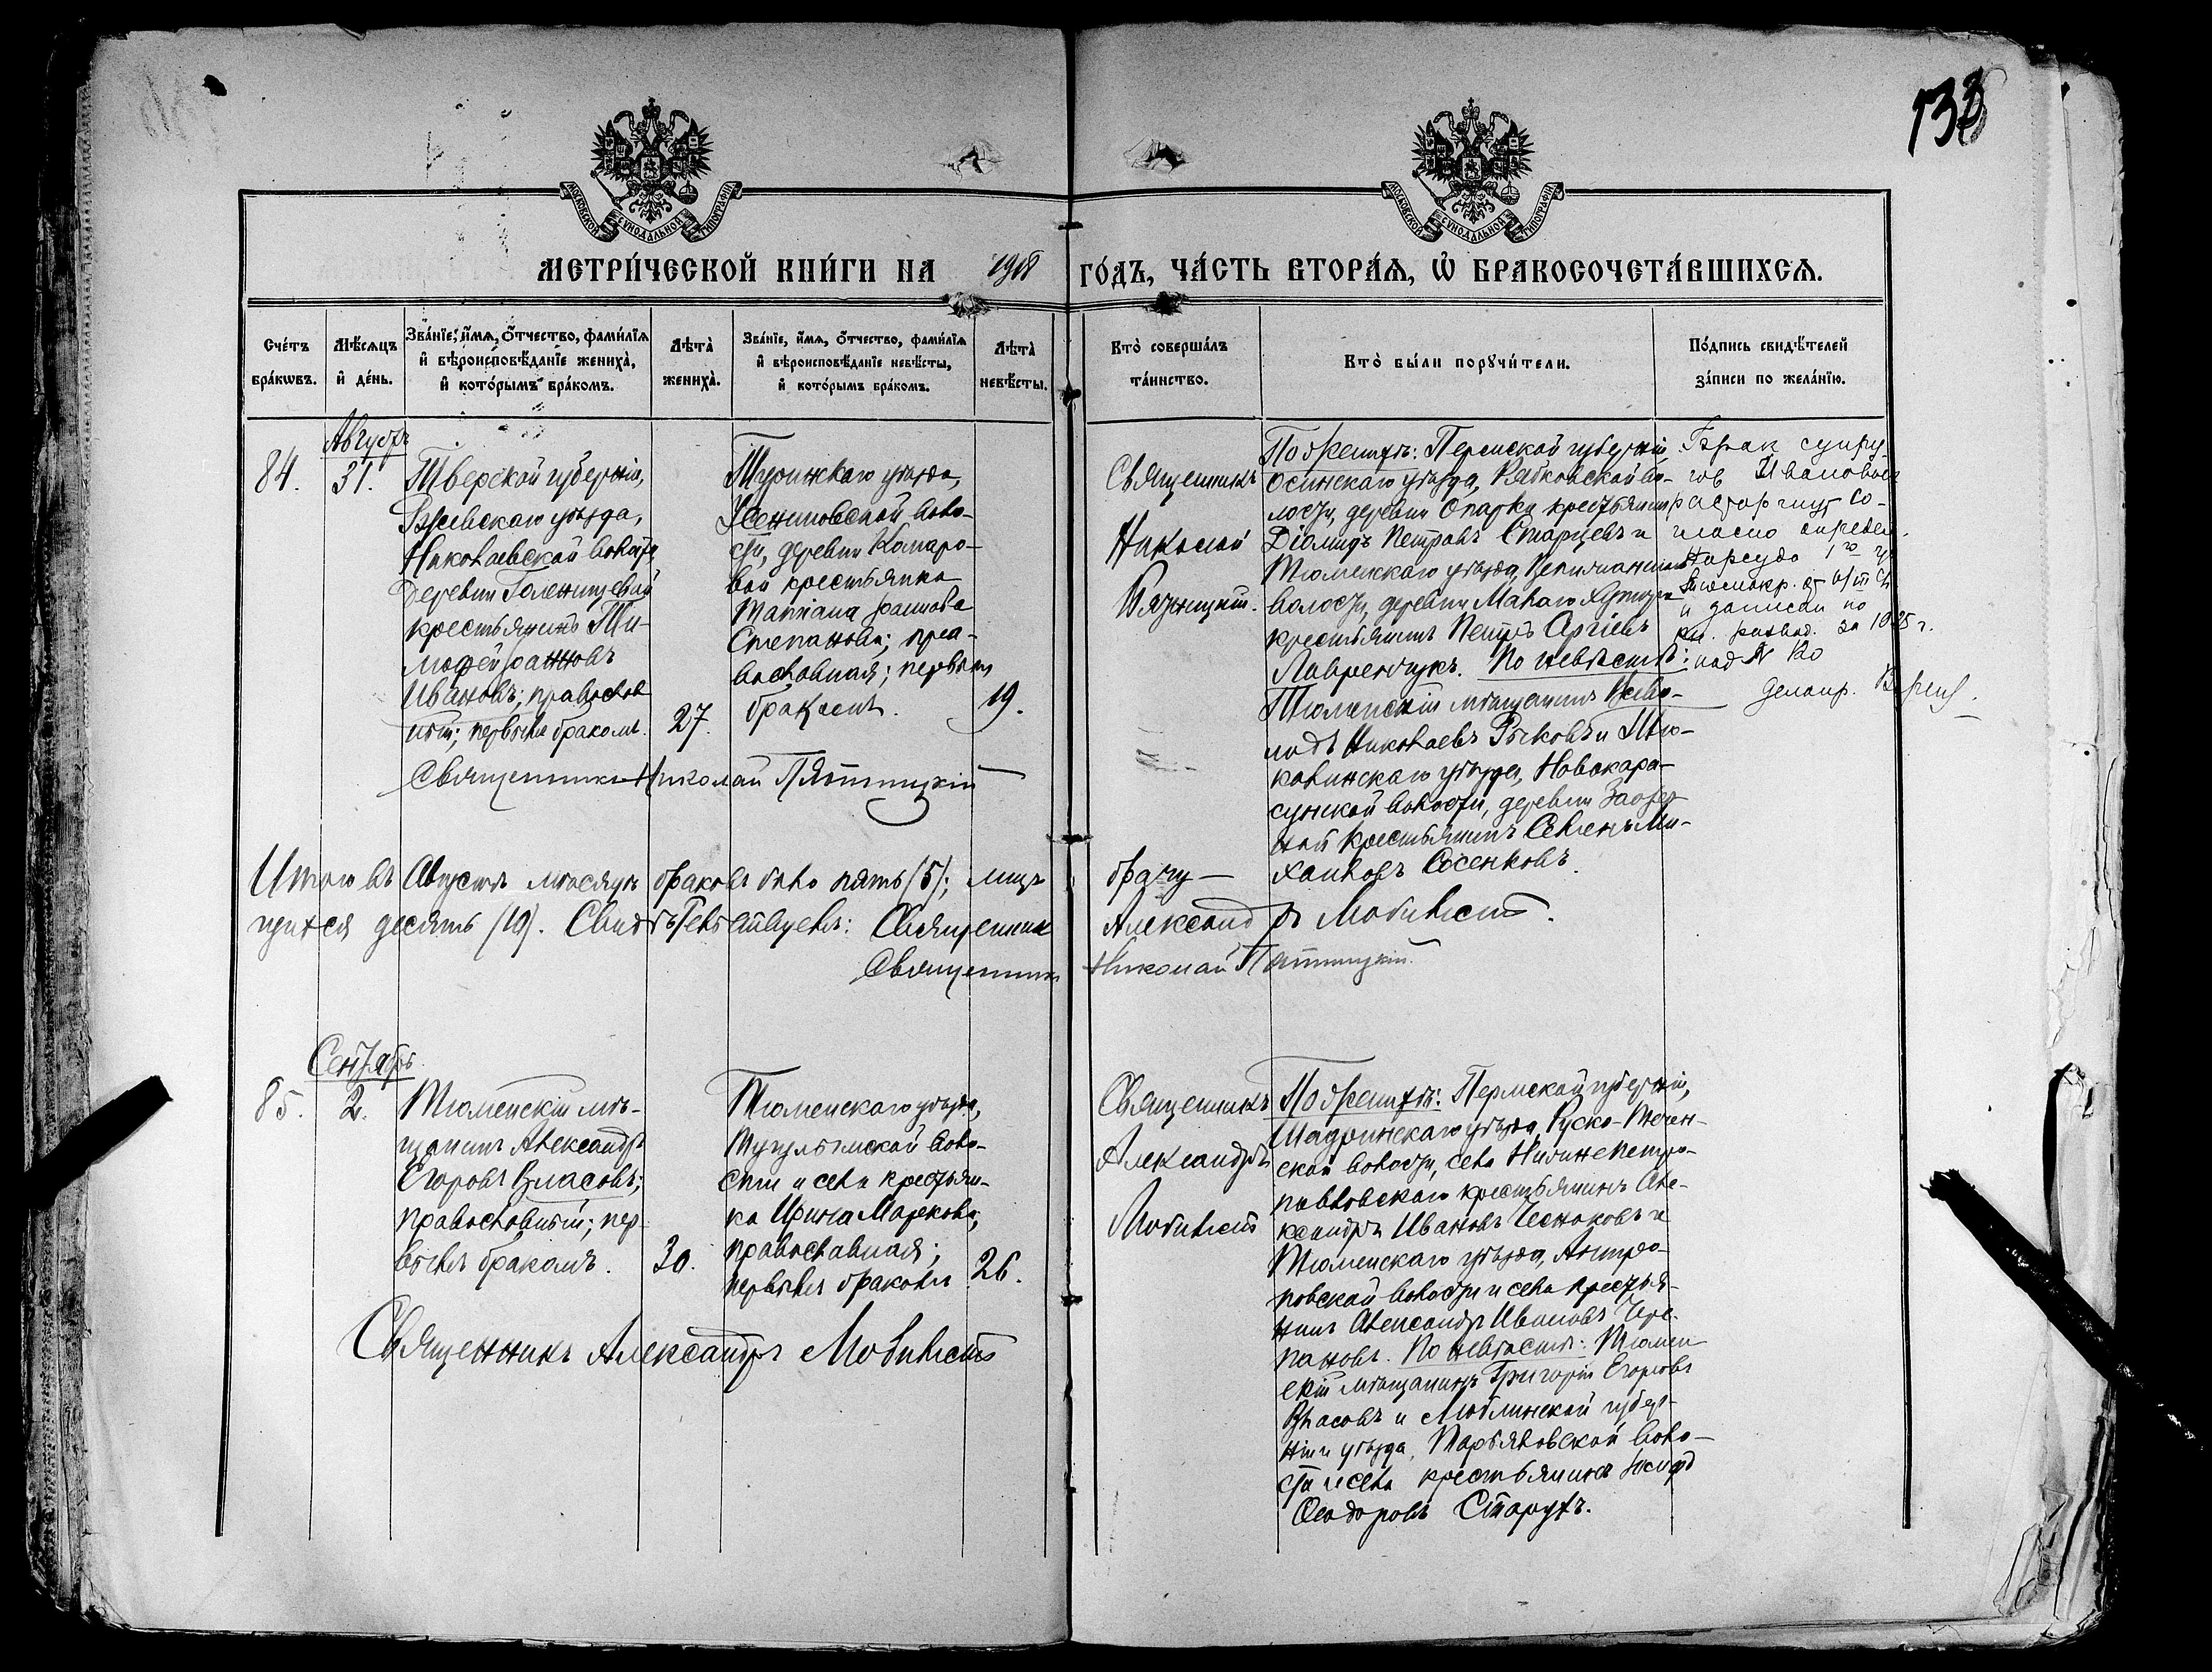 133
МОСКОВСКОЙ СѴНОДАЛЬНОЙ ТИПОГРАФІИ
МОСКОВСКОЙ СѴНОДАЛЬНОЙ ТИПОГРАФІИ
МЕТРИ́ЧЕСКОЙ КНИ́ГИ НА 1918 ГО́ДЪ, ЧА́СТЬ ВТОРА́Я, Ѡ҆ БРАКОСОЧЕТА́ВШИХСЯ.
Сче́тъ бра́кѡвъ.
Мѣ́сяцъ и҆ де́нь.
Зва́нїе, и҆́мя, ѻ҆́тчество, фами́лїя и҆ вѣроисповѣ́данїе жениха̀, и҆ кото́рымъ бра́комъ.
Лѣта̀ жениха̀.
Зва́нїе, и҆́мя, ѻ҆́тчество, фами́лїя и҆ вѣроисповѣ́данїе невѣ́сты, и҆ кото́рымъ бра́комъ.
Лѣта̀ невѣ́сты.
Кто̀ соверша́лъ та́инство.
Кто̀ бы́ли порꙋчи́тели.
По́дпись свидѣ́телей за́писи по жела́нїю.
84.
Августъ
31.
Тверской губерніи,
Ржевскаго уѣзда,
Николаевской волости,
деревни Голенищевой
крестьянинъ Ти-
мофей
Ивановъ; православ-
ный; первымъ бракомъ.
27.
Туринскаго уѣзда,
Усениновской воло-
сти, деревни Комаро-
вой крестьянка
Татіана
Степанова; право-
славная; первымъ
бракомъ.
19.
Священникъ
Николай
Пятницкій.
По женихѣ: Пермской губерніи,
Осинскаго уѣзда, Рябковской во-
лости, деревни Опарки крестьянинъ
Діомидъ Петровъ Старцевъ и
Тюменскаго уѣзда,
волости, деревни Малаго Хутора
крестьянинъ Петръ
Лаврентчукъ. По невѣстѣ:
Тюменскій мѣщанинъ Всево-
лодъ Николаевъ Рыковъ и Тю-
калинскаго уѣзда, Новокара-
сукской волости, деревни Заозер-
ной крестьянинъ Семенъ Ми-
хаиловъ Сосенковъ.
Брак супру-
гов Ивановых
расторгнут со-
гласно определ.
Нарсуда 1го у.
и записан по
кн. развод. за 1925 г.
под № 120
Делопр.
Священникъ Николай Пятницкій
Итого въ Августѣ мѣсяцѣ браковъ было пять (5); лицъ брачу-
щихся десять (10). Свидѣтельствуемъ: Священникъ Александръ
Священникъ Николай Пятницкій.
Сентябрь.
85.
2.
Тюменскій мѣ-
щанинъ Александръ
Егоровъ Власовъ;
православный; пер-
вымъ бракомъ.
30.
Тюменскаго уѣзда,
Тугулымской воло-
сти и села крестьян-
ка Ирина Маркова;
православная;
первымъ бракомъ
26.
Священникъ
Александръ
По женихѣ: Пермской губерніи,
Шадринскаго уѣзда, Руско-Течен-
ской волости, села Нижнепетро-
павловскаго крестьянинъ Але-
ксандръ Ивановъ Чесноковъ и
Тюменскаго уѣзда, Антро-
повской волости и села крестья-
нинъ Александръ Ивановъ Чере-
пановъ. По невѣстѣ: Тюмен-
скій мѣщанинъ Григорій Егоровъ
Власовъ и Люблинской губер-
ніи и уѣзда, воло-
сти и села крестьянинъ
Ѳеодоровъ Старухъ.
Священникъ Александръ